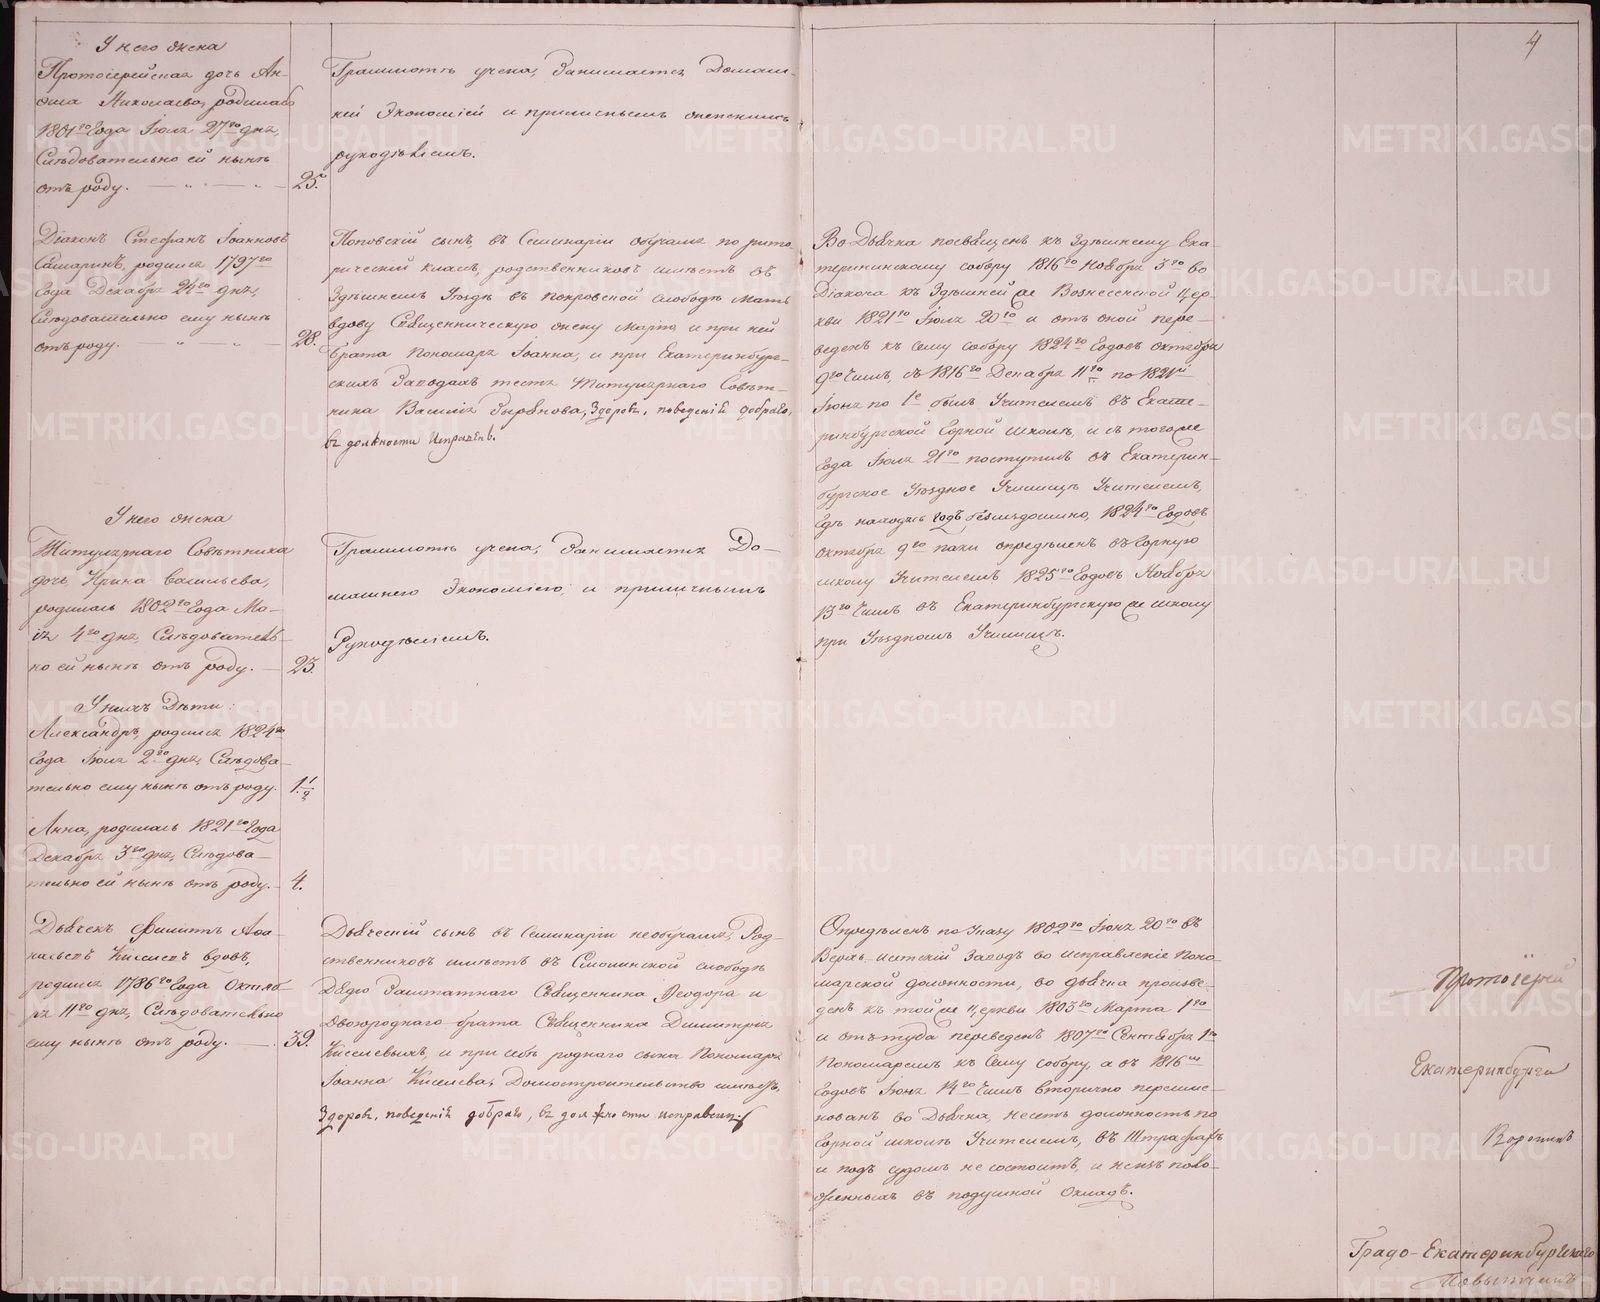 4
У него жена
Протоіерейская дочь Ан-
на Николаева, родилась
1801го Года Іюля 27го дня,
Слѣдовательно ей нынѣ
отъ роду. 25.
Грамотѣ учена, Занимается Домаш-
ней Экономіей и приличнымъ
рукодѣліемъ.
Діаконъ Стефанъ Іоанновъ
Самаринъ, родился 1797го
Года Декабря 24го дня,
Слѣдовательно ему нынѣ
отъ роду. 28.
Поповскій сынъ, въ Семинаріи обучался по рито-
рическій классъ, родственниковъ имѣетъ въ
Здѣшнемъ Уѣздѣ въ Покровской слободѣ Мать
вдову Священническую жену Марію, и при ней
брата Пономаря Іоанна, и при Екатеринбург-
скихъ Заводахъ тестя Титулярнаго Совѣт-
ника Василія Зырянова, Здоровъ, поведенія добраго,
въ должности исправенъ.
Во Дьячка посвященъ къ Здѣшнему Ека-
терининскому собору 1816го Ноября 3го во
Діакона къ Здѣшней же Вознесенской Цер-
кви 1821го Іюля 20го и отъ оной пере-
веденъ къ сему собору 1824го Годовъ Октября
9го Числъ, съ 1816го Декабря 11го по 1821й
Іюня по 1е былъ Учителемъ въ Екате-
ринбургской Горной Школѣ, и съ тогоже
Года Іюля 21го поступилъ въ Екатерин-
бургское Уѣздное Училище Учителемъ,
Гдѣ находясь годъ безмездошно, 1824го Годовъ
Октября 9го паки опредѣленъ въ Горную
школу Учителемъ 1825го Годовъ Ноября
13го Числъ въ Екатеринбургскую же школу
при Уѣздномъ Училищѣ.
У него жена
Титулярнаго Совѣтника
дочь Ирина Васильева,
родилась 1802го Года Ма-
ія 4го дня, Слѣдователь-
но ей нынѣ отъ роду. 23.
Грамотѣ учена, Занимается До-
машнею Экономіею и приличнымъ
Рукодѣліемъ.
У нихъ Дѣти:
Александръ, родился 1824го
Года Іюля 2го дня, Слѣдова-
тельно ему нынѣ отъ роду. 1 1/2
Анна, родилась 1821го Года
Декабря 3го дня, Слѣдова-
тельно ей нынѣ отъ роду. 4.
Дьячекъ Филиппъ Аѳа-
насьевъ Киселевъ вдовъ,
родился 1786го Года Октяб-
ря 11го дня, Слѣдовательно
ему нынѣ отъ роду. 39.
Дьяческій сынъ въ Семинаріи необучался, Род-
ственниковъ имѣетъ въ Смолинской слободѣ
Дядю Заштатнаго Священника Ѳеодора и
Двоюроднаго брата Священника Димитрія
Киселевыхъ, и при себѣ роднаго сына Пономаря
Іоанна Киселева, Домостроительство имѣетъ,
Здоровъ, поведенія добраго, въ должности исправенъ.
Опредѣленъ по Указу 1802го Іюня 20го въ
Верхъ-исетскій Заводъ во исправленіе Поно-
марской должности, во дьячка произве-
денъ къ тойже церкви 1803го Марта 1го
и отътуда переведенъ 1807го Сентября 1го
Пономаремъ къ Сему собору, а въ 1816мъ
Годовъ Іюня 14го Числъ вторично переиме-
нованъ во Дьячка, несетъ должность по
Горной школѣ Учителемъ, въ Штрафахъ
и подъ судомъ не состоитъ, и неизъ поло-
женныхъ въ подушной Окладъ.
Протоіерей
Екатеринбурга
Градо-Екатеринбургскаго
METRIKI.GASO-URAL.RU